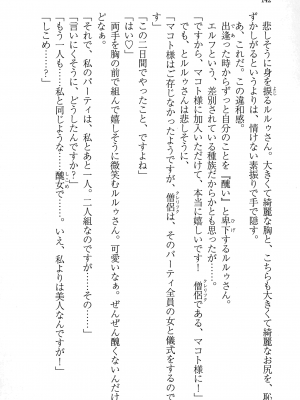 悲しそうに身を振るルルゥさん。大きくて綺麗な胸と、こちらも大きくて綺麗なお尻を、恥
ずかしがるというよりは、情けない素振りで手で隠す。
あ、これだ。この違和感。
出逢った時からずっと自分のことを『醜い』と卑下するルルゥさん。
エルフという、差別されている種族だからかとも思ったが……。
「ですから、マコト様に加入いただけて、本当に嬉しいです！　僧侶である、マコト様に！」
でも、とルルゥさんは悲しそうに、
「マコト様はご存じなかったようですが、僧侶は、そのパーティ全員の女と儀式をするので
す」
「この二日間でやったこと、ですよね」
「はい♡」
両手を胸の前で組んで嬉しそうに微笑むルルゥさん。可愛いなぁ。ぜんぜん醜くないんだけ
どなぁ。
「それで、私のパーティは、私とあと一人。二人組なのですが……その……」
「言いにくそうに、どうしたんですか？」
「もう一人も……私と同じような……醜女で……。いえ、私よりは美人なんですが！」
「しこめ……？」